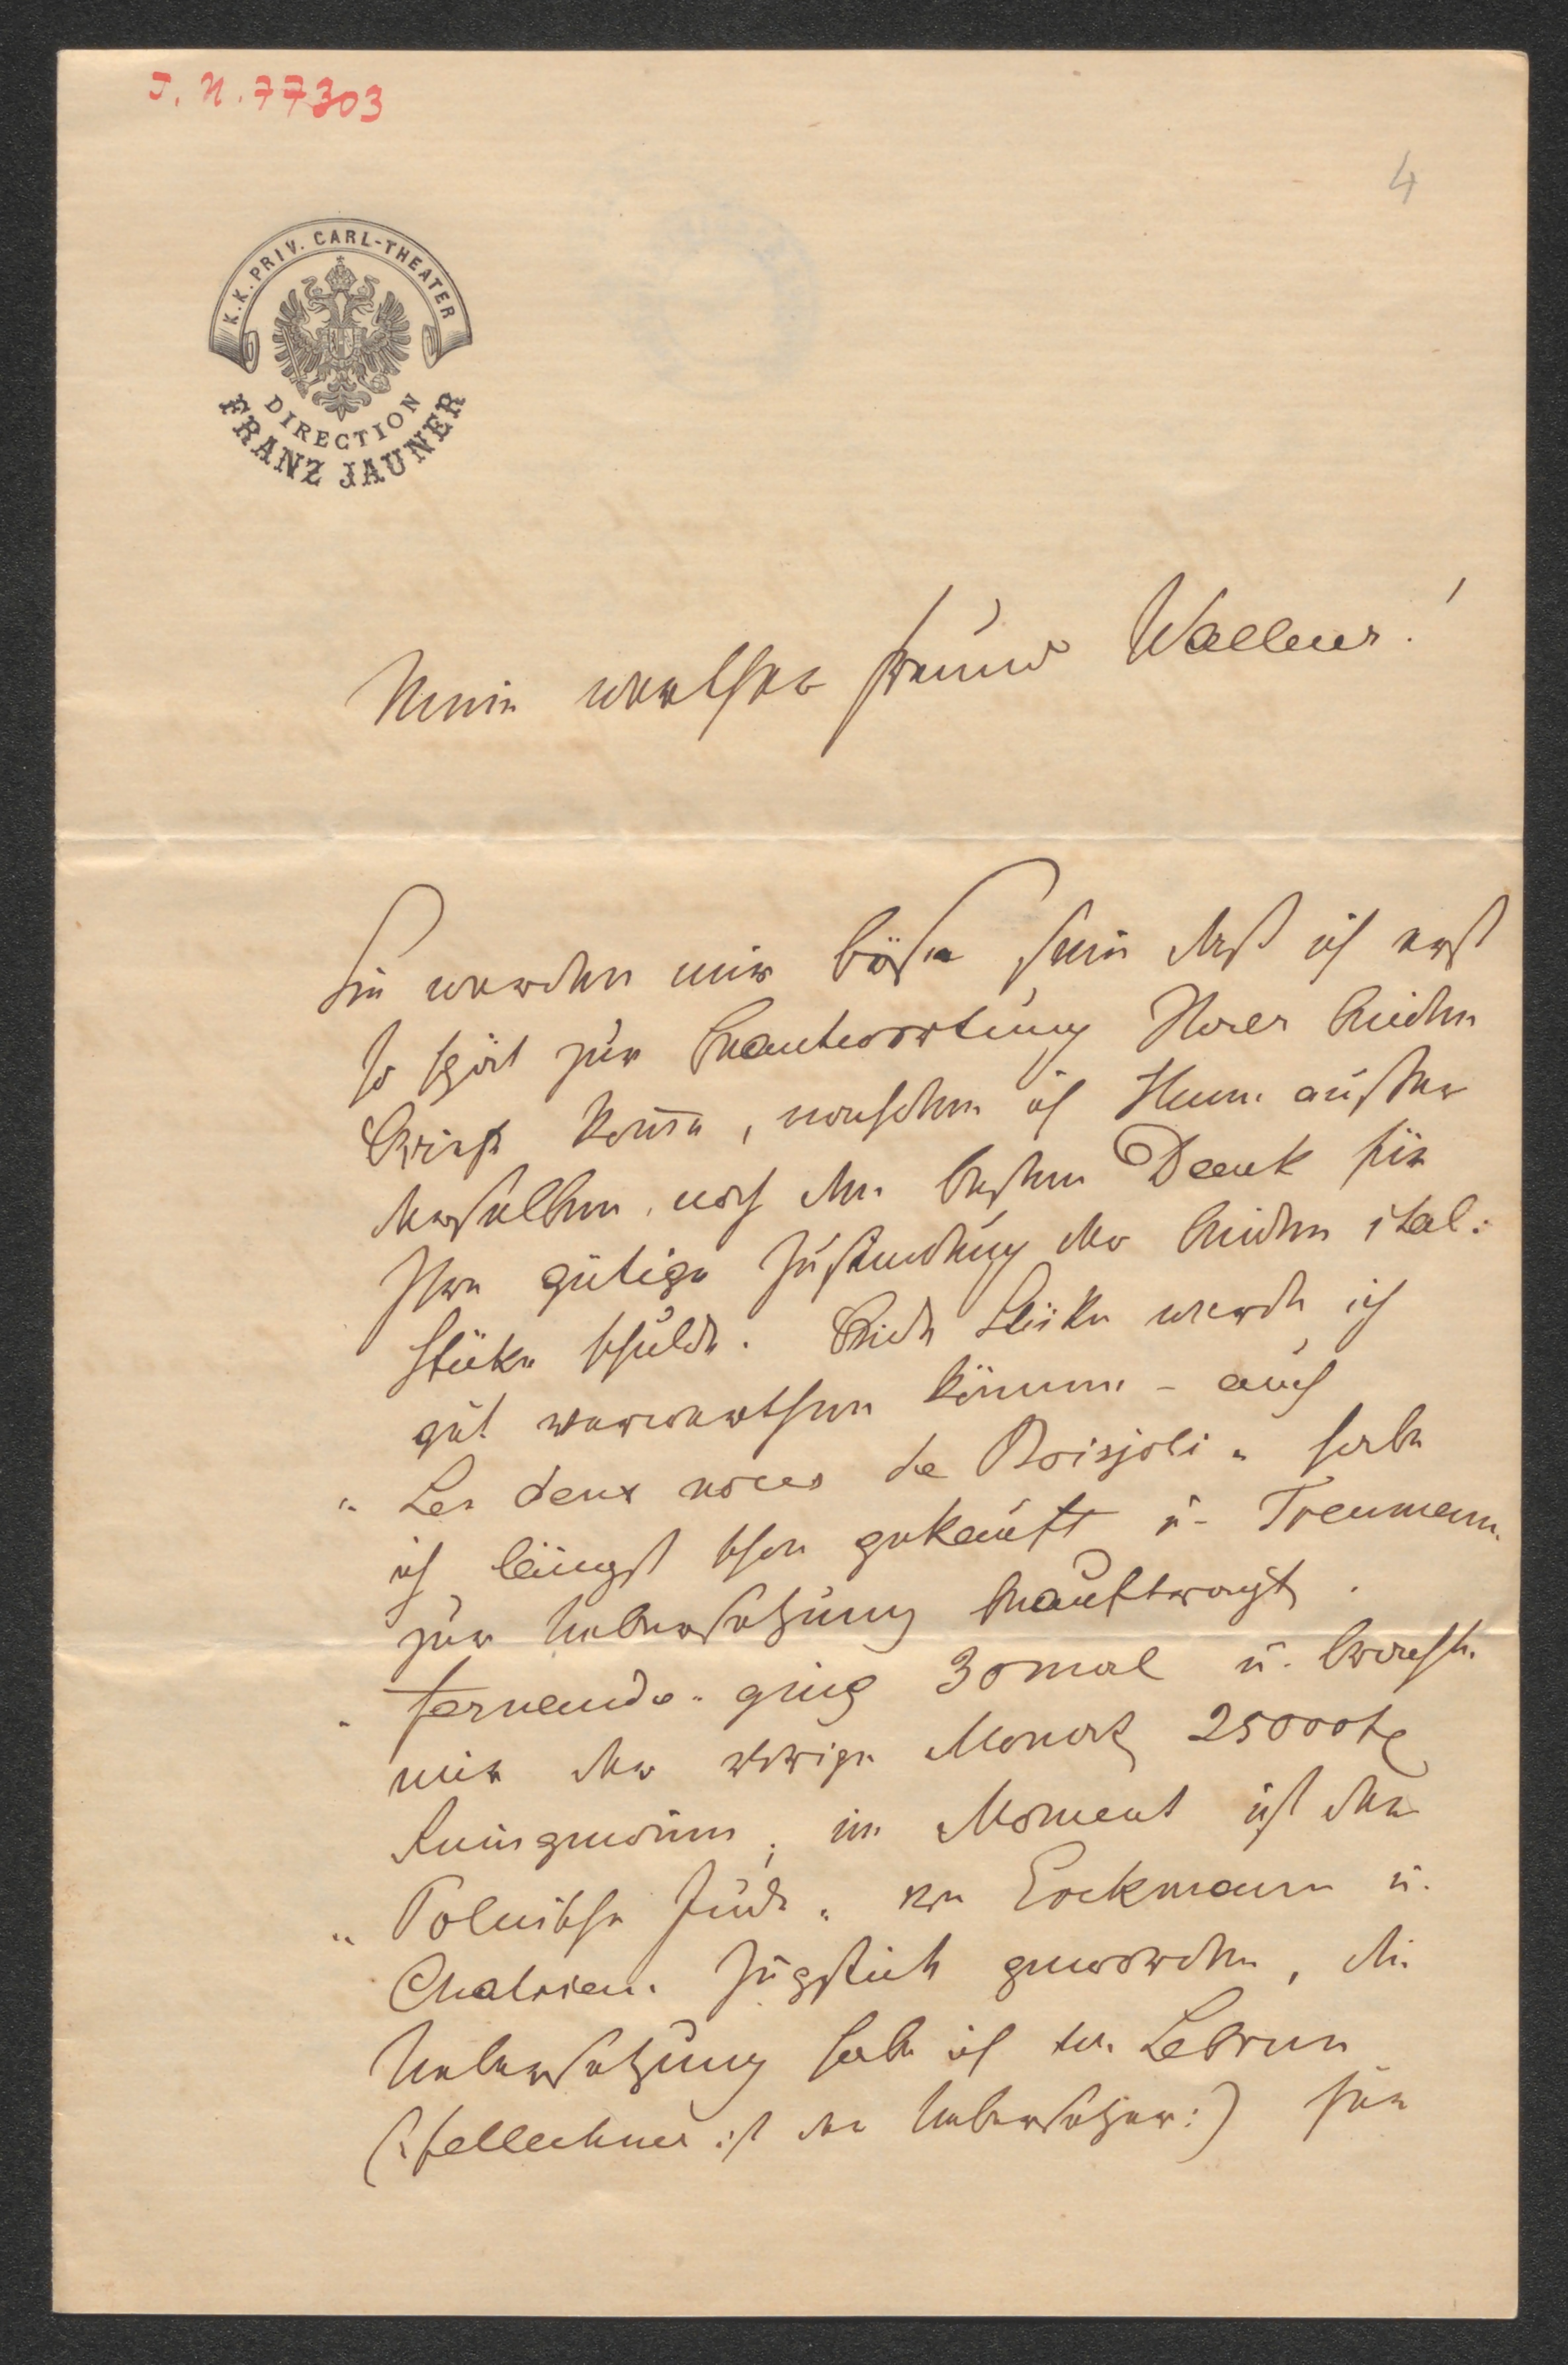 J. N. 77303
4
K. K. PRIV. CARL-THEATER
DIRECTION
FRANZ JAUNER
Mein werther Freund Wallner!
Sie werden mir böse sein daß ich erst
so spät zur Beantwortung Ihrer beiden
Briefe kom̄e, nachdem ich Ihnen außer
derselben, noch den besten Dank für
Ihre gütige Zusendung der beiden ital:
Stücke schulde. Beide Stücke werde ich
gut verwerthen können - auch
"Les deux noces de Boisjoli" habe
ich längst schon gekauft u. Treumann
zur Uebersetzung beauftragt.
"Fernande" ging 30mal u. brachte
mir der vorige Monat 25000 fl
Reingewinn; im Moment ist der
"Polnische Jude" von Erckmann u.
Chatrian Zugstück geworden, die
Uebersetzung habe ich von Lebrun
(: ist der Uebersetzer:) für